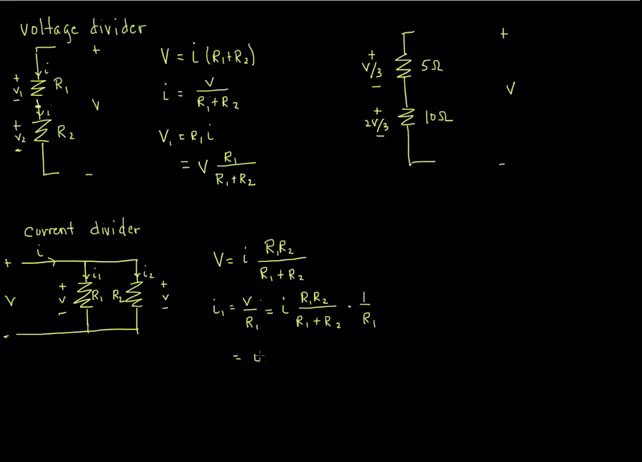 voltage divider
+
i
+ V₁ − R₁
V
i
+ V₂ − R₂
−
V = i (R₁+R₂)
i = V / (R₁+R₂)
V₁ = R₁ i
= V R₁ / (R₁+R₂)
+
+ V/3 − 5Ω
V
+ 2V/3 − 10Ω
−
current divider
+ i
i₁ i₂
V + V − R₁ R₂ + V −
−
V = i R₁R₂ / (R₁+R₂)
i₁ = V/R₁ = i R₁R₂ / (R₁+R₂) · 1/R₁
= i